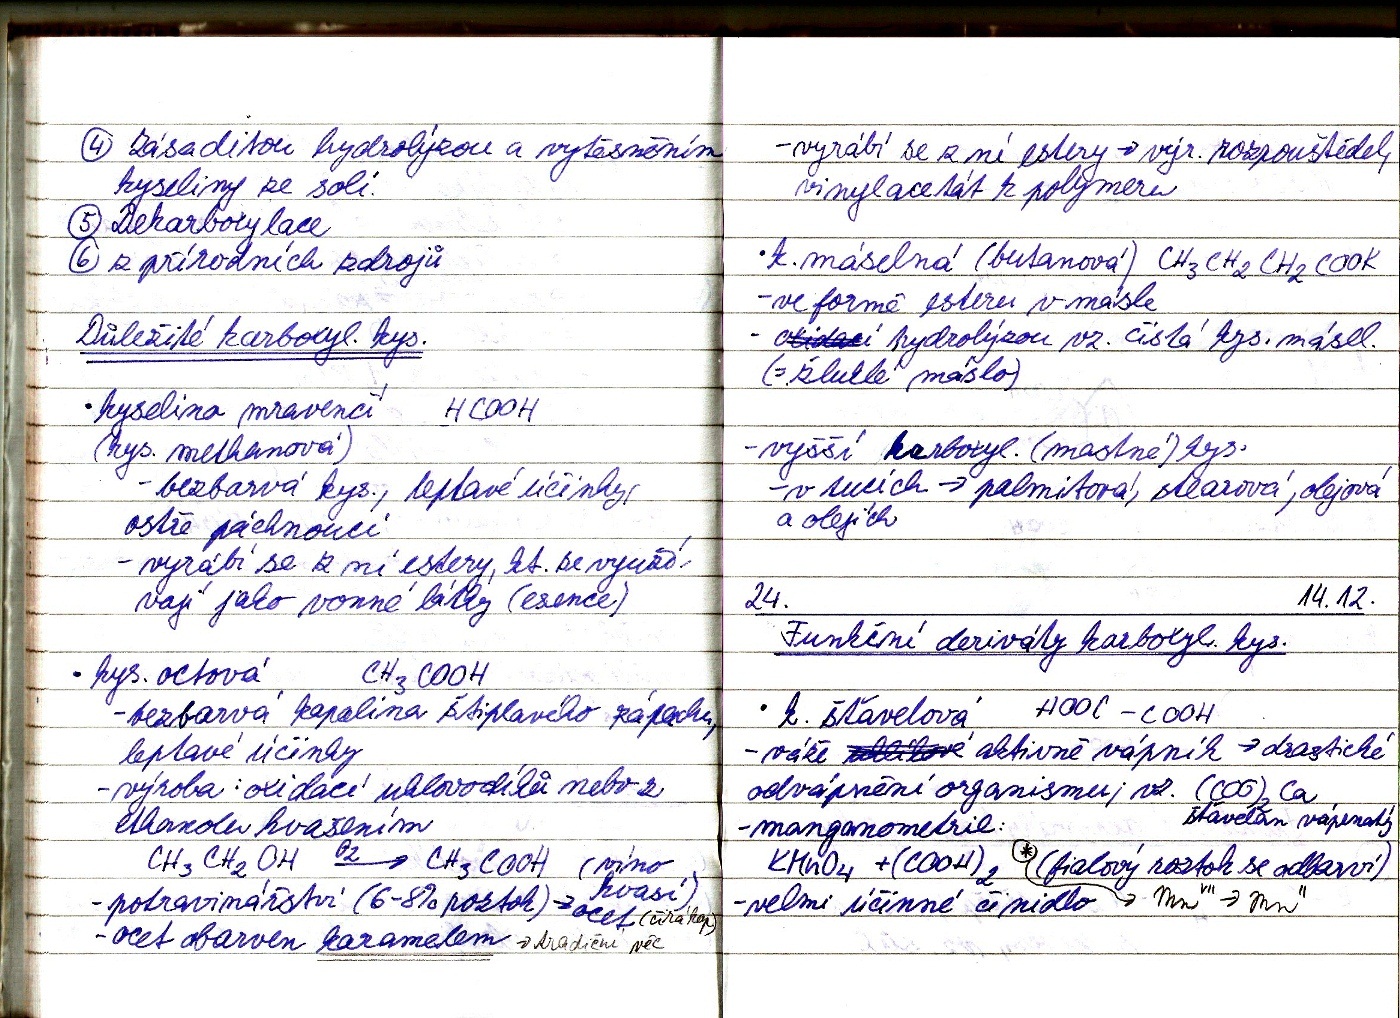 ④ Zásaditou hydrolýzou a vytěsněním
kyseliny ze solí.
⑤ Dekarboxylace
⑥ z přírodních zdrojů
Důležité karboxyl. kys.
• kyselina mravenčí HCOOH
(kys. methanová)
- bezbarvá kys., leptavé účinky,
ostře páchnoucí
- vyrábí se z ní estery, kt. se využí-
vají jako vonné látky (esence)
• kys. octová CH₃COOH
- bezbarvá kapalina štiplavého zápachu,
leptavé účinky
- výroba: oxidací uhlovodíků nebo z
ethanolu kvašením
CH₃CH₂OH O₂→ CH₃COOH (víno
kvasí)
- potravinářství (6-8% roztok) → ocet (čirá kap)
- ocet obarven karamelem → tradiční věc
- vyrábí se z ní estery → výr. rozpouštědel,
vinylacetát k polymeru
• k. máselná (butanová) CH₃CH₂CH₂COOH
- ve formě esteru v másle
- oxidací hydrolýzou vz. čistá kys. másel.
(= žluklé máslo)
- vyšší karboxyl. (mastné) kys.
- v tucích → palmitová, stearová, olejová
a olejích
24. 14.12.
Funkční deriváty karboxyl. kys.
• k. šťavelová HOOC - COOH
- váže aktivně vápník → drastické
odvápnění organismu, vz. (COO)₂Ca
šťavelan vápenatý
- manganometrie:
KMnO₄ + (COOH)₂ * (fialový roztok se odbarví)
- velmi účinné činidlo → Mn^VII → Mn^II